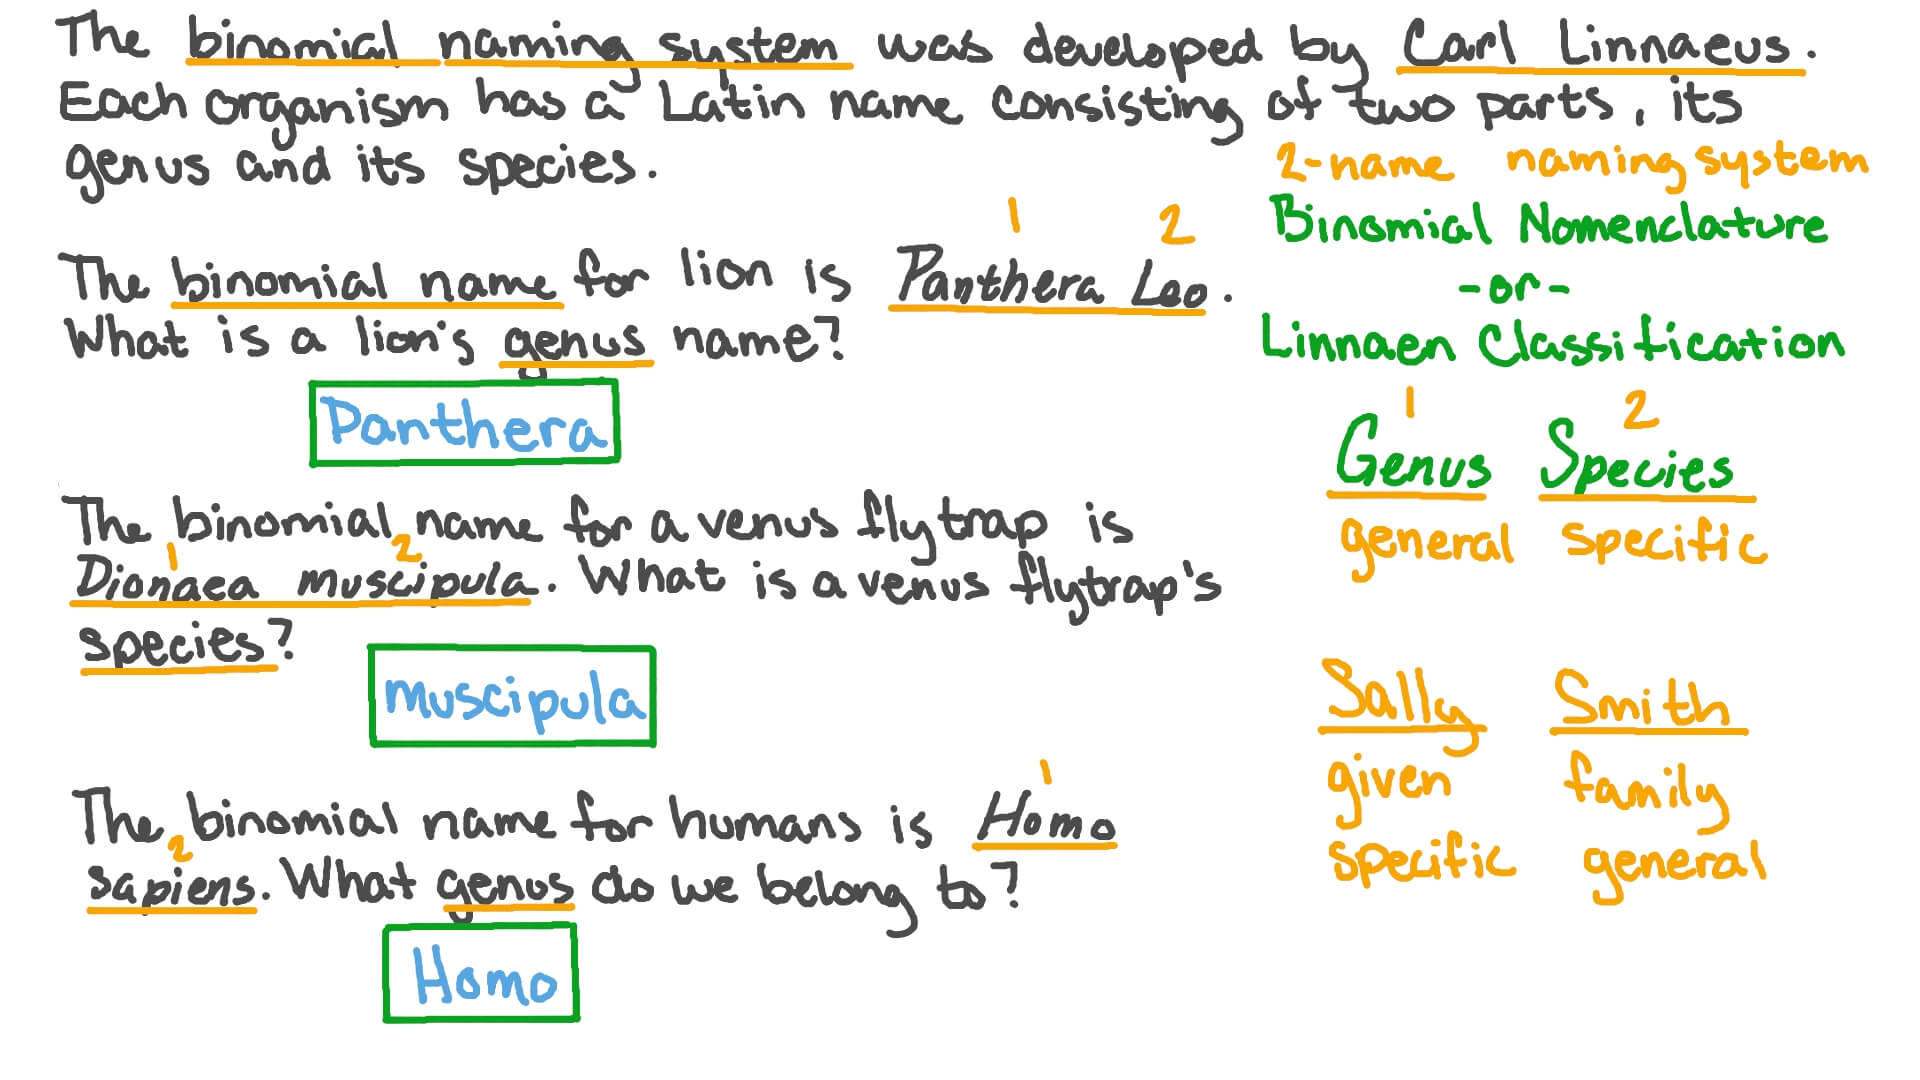 The binomial naming system was developed by Carl Linnaeus.
Each organism has a Latin name consisting of two parts, its
genus and its species.
2-name naming system
Binomial Nomenclature
-or-
Linnaen Classification
1 2
The binomial name for lion is Panthera Leo.
What is a lion's genus name?
Panthera
1 2
Genus Species
general specific
The binomial name for a venus fly trap is
1 2
Dionaea muscipula. What is a venus flytrap's
species?
muscipula
Sally Smith
given family
specific general
1
The binomial name for humans is Homo
2
sapiens. What genus do we belong to?
Homo